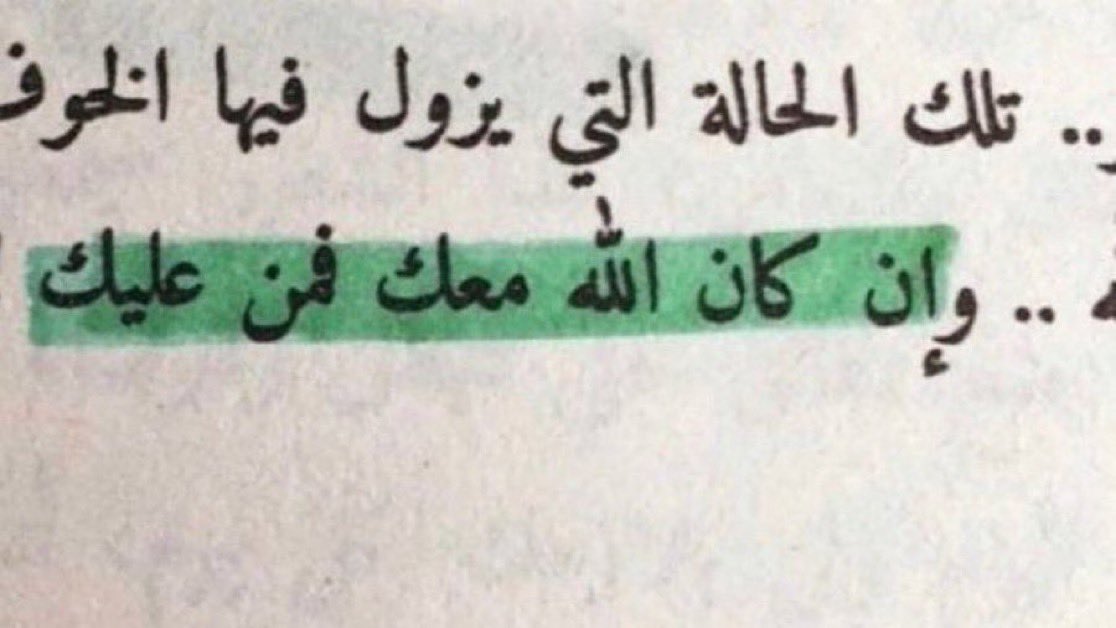 .. تلك الحالة التي يزول فيها الخوف
.. وإن كان الله معك فمن عليك